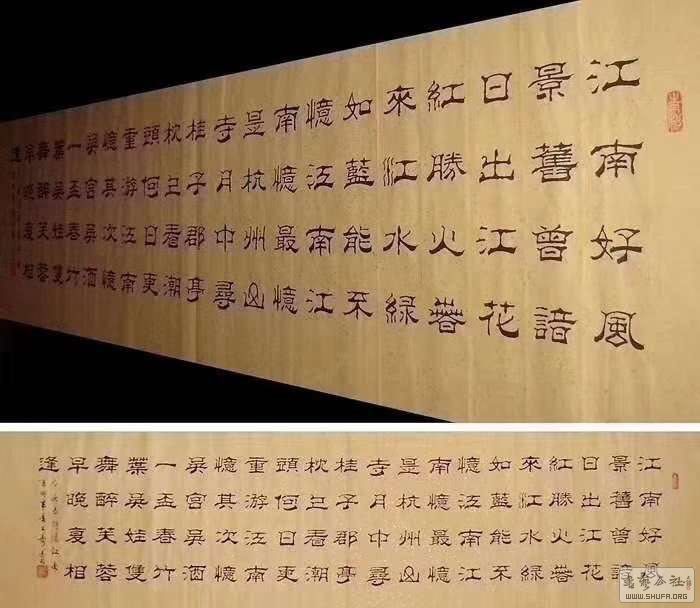 江南好風
景舊曾諳
日出江花
紅勝火春
來江水綠
如藍能不
憶江南江
南憶最憶
是杭州山
寺月中尋
桂子郡亭
枕上看潮
頭何日更
重游江南
憶其次憶
吳宮吳酒
一盃春竹
葉吳娃雙
舞醉芙蓉
早晚復相
逢
江南好風
景舊曾諳
日出江花
紅勝火春
來江水綠
如藍能不
憶江南江
南憶最憶
是杭州山
寺月中尋
桂子郡亭
枕上看潮
頭何日更
重游江南
憶其次憶
吳宮吳酒
一盃春竹
葉吳娃雙
舞醉芙蓉
早晚復相
逢
書藝公社
WWW.SHUFA.ORG